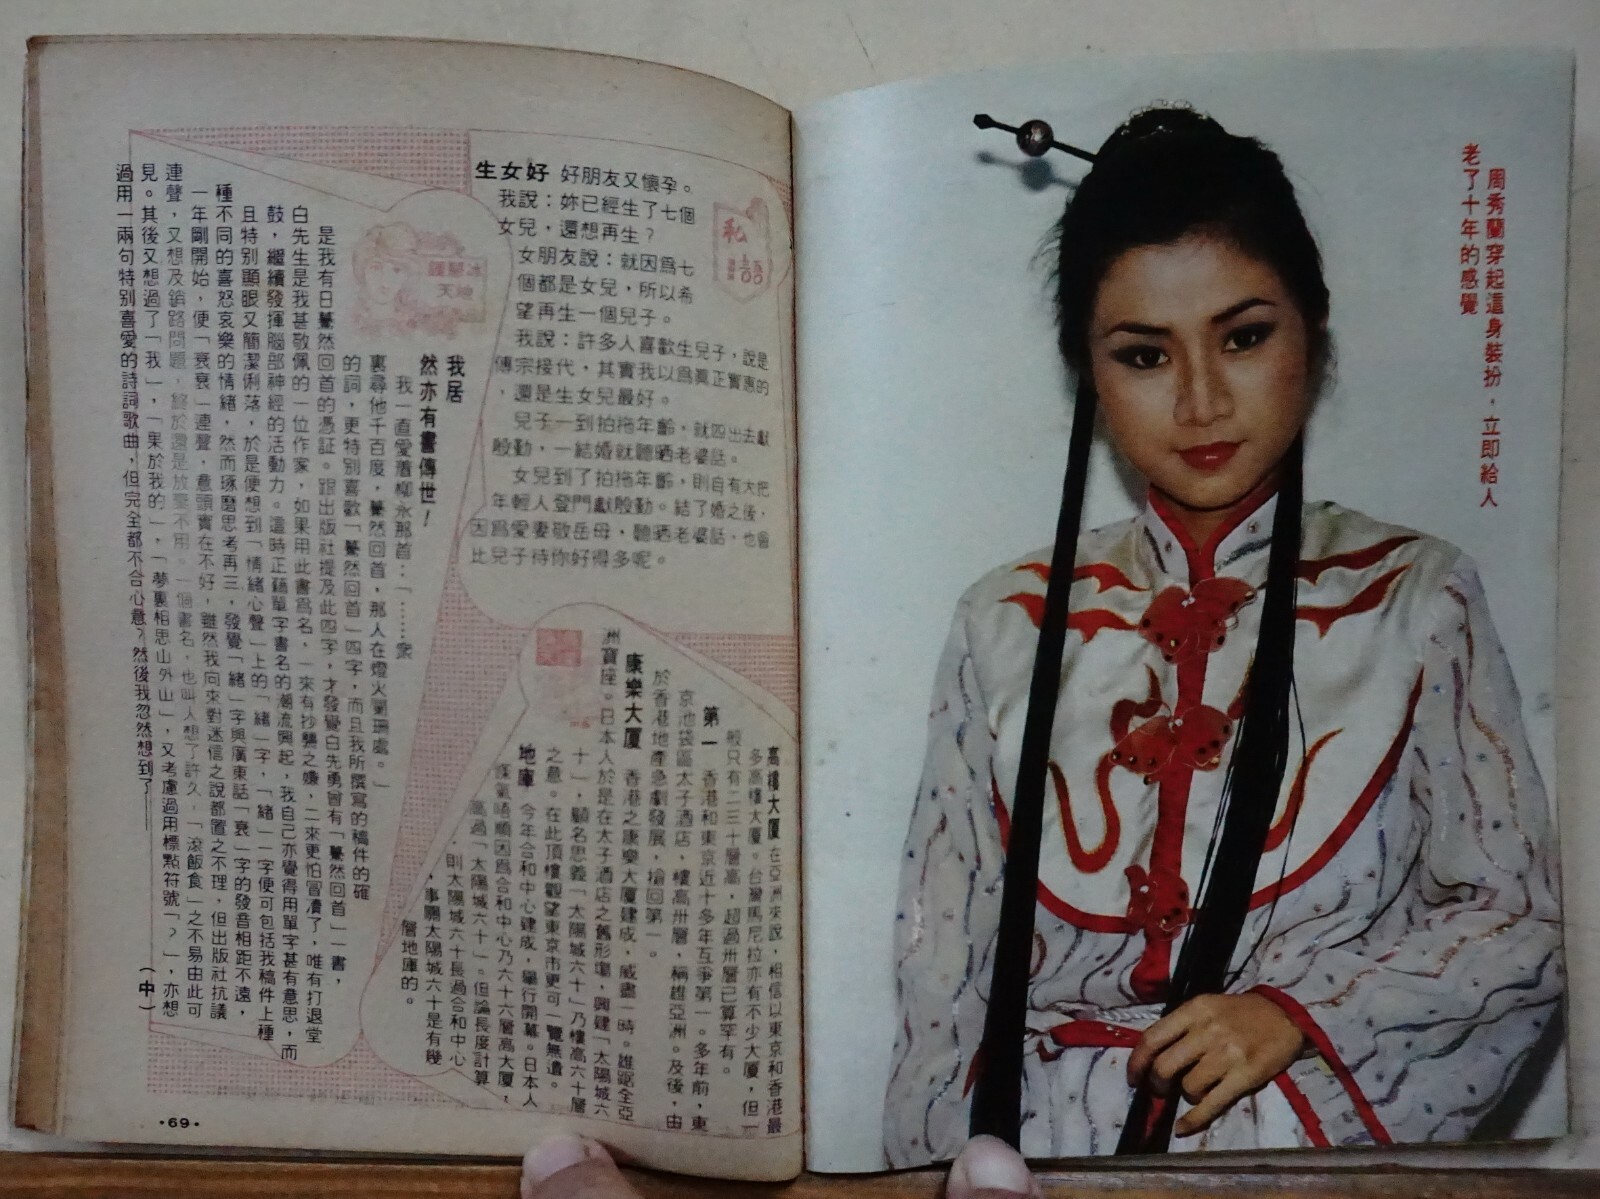 周秀蘭穿起這身裝扮，立即給人
老了十年的感覺
私語
生女好 好朋友又懷孕。
我說：妳已經生了七個
女兒，還想再生？
女朋友說：就因為七
個都是女兒，所以希
望再生一個兒子。
我說：許多人喜歡生兒子，說是
傳宗接代，其實我以為眞正實惠的
，還是生女兒最好。
兒子一到拍拖年齡，就四出去獻
殷勤，一結婚就聽晒老婆話。
女兒到了拍拖年齡，則自有大把
年輕人登門獻殷勤。結了婚之後，
因為愛妻敬岳母，聽晒老婆話，也會
比兒子待你好得多呢。
高樓大廈 在亞洲來說，相信以東京和香港最
多高樓大廈。台灣馬尼拉亦有不少大廈，但一
般只有二三十層高，超過卅層已算罕有。
第一 香港和東京近十多年互爭第一。多年前，東
京池袋區太子酒店，樓高卅層，稱雄亞洲。及後，由
於香港地產急劇發展，搶回第一。
康樂大厦 香港之康樂大厦建成，威盡一時。雄踞全亞
洲寶座。日本人於是在太子酒店之舊形塲，興建「太陽城六
十」，顧名思義「太陽城六十」乃樓高六十層
之意。在此頂樓觀望東京市更可一覽無遺。
地庫 今年合和中心建成，舉行開幕。日本人
謀氣唔順因爲合和中心乃六十六層高大厦，
高過「太陽城六十」。但論長度計算
，則太陽城六十長過合和中心
，事關太陽城六十是有幾
層地庫的。
天地
我居
然亦有書傳世！
我一直愛煞柳永那首：「……衆
裏尋他千百度，驀然回首，那人在燈火闌珊處。」
的詞，更特別喜歡「驀然回首」四字，而且我所撰寫的稿件的確
是我有日驀然回首的憑証。跟出版社提及此四字，才發覺白先勇曾有「驀然回首」一書，
白先生是我甚敬佩的一位作家，如果用此書爲名，一來有抄襲之嫌，二來更怕冒瀆了，唯有打退堂
鼓，繼續發揮腦部神經的活動力。這時正藉單字書名的潮流興起，我自己亦覺得用單字甚有意思，而
且特別顯眼又簡潔俐落，於是便想到「情緒心聲」上的「緒」字，「緒」一字便可包括我稿件上種
種不同的喜怒哀樂的情緒，然而琢磨思考再三，發覺「緒」字與廣東話「衰」字的發音相距不遠，
一年剛開始，便「衰衰」連聲，意頭實在不好，雖然我向來對迷信之說都置之不理，但出版社抗議
連聲，又想及銷路問題，終於還是放棄不用。一個書名，也叫人想了許久，「滾飯食」之不易由此可
見。其後又想過了「我」，「果於我的」，「夢裏相思山外山」，又考慮過用標點符號「？」，亦想
過用一兩句特別喜愛的詩詞歌曲，但完全都不合心意？然後我忽然想到了——
（中）
·69·